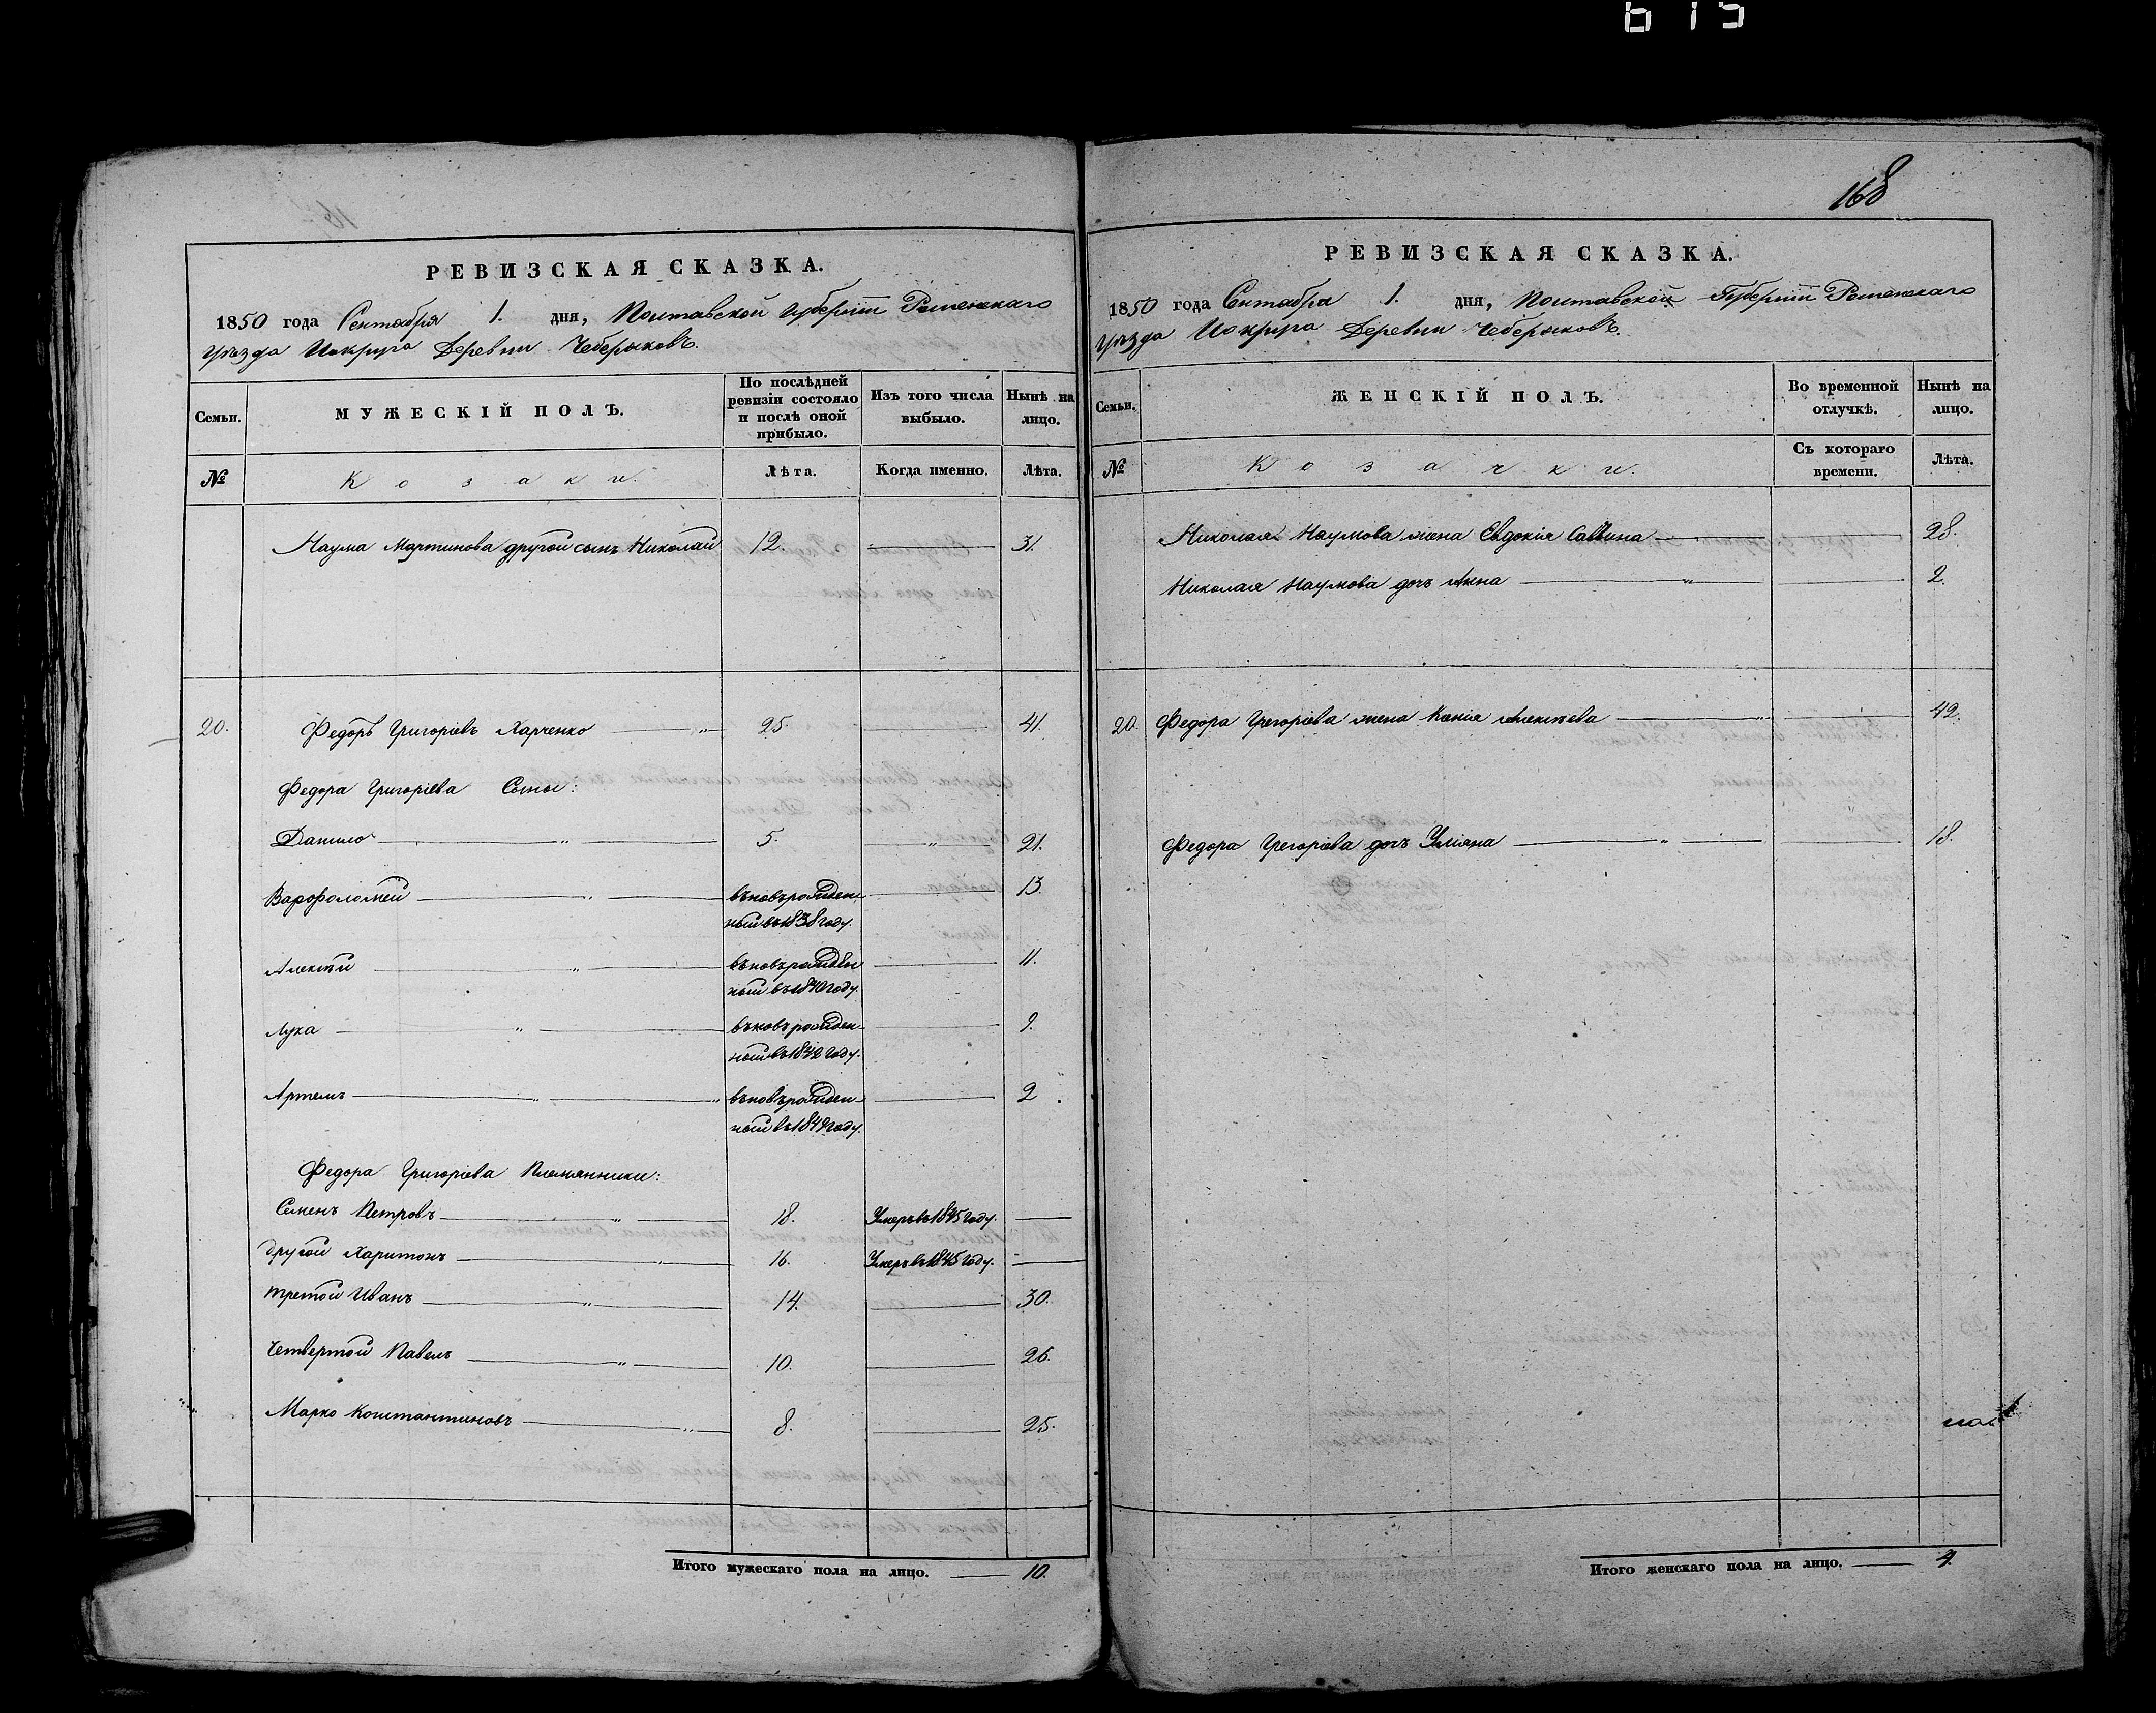 615
168
РЕВИЗСКАЯ СКАЗКА.
1850 года Сентября 1. дня, Полтавской Губерніи Роменскаго
уѣзда Иокруга Деревни Чеберяковъ.
Семьи.
МУЖЕСКІЙ ПОЛЪ.
По послѣдней ревизіи состояло и послѣ оной прибыло.
Изъ того числа выбыло.
Нынѣ на лицо.
№
Козаки.
Лѣта.
Когда именно.
Лѣта.
Наума Мартинова другой сынъ Николай 12. 31.
20. Федоръ Григоріевъ Харченко 25 41.
Федора Григоріева Сыны:
Данило 5. 21.
Варфоломей вновьрожден- 13.
ный въ 1838 году.
Алексѣй вновьрожден 11.
ный въ 1840 году.
Лука вновьрожден- 9.
ный въ 1842 году.
Артемъ вновьрожден- 2
ный въ 1849 году.
Федора Григоріева Племянники:
Семенъ Петровъ 18. Умеръ въ 1845 году.
другой Харитонъ 16. Умеръ въ 1845 году.
третой Иванъ 14. 30.
Четвертой Павелъ 10. 26.
Марко Константиновъ 8. 25.
Итого мужескаго пола на лицо. 10.
РЕВИЗСКАЯ СКАЗКА.
1850 года Сентября 1. дня, Полтавской Губерніи Роменскаго
уѣзда Иокруга Деревни Чеберяковъ.
Семьи.
ЖЕНСКІЙ ПОЛЪ.
Во временной отлучкѣ.
Нынѣ на лицо.
№
Козачки.
Съ котораго времени.
Лѣта.
Николая Наумова жена Евдокія Саввина 28.
Николая Наумова дочь Анна 2.
20. Федора Григоріева жена Ксенія Алексѣева 42.
Федора Григоріева дочь Уліяна 18.
Итого женскаго пола на лицо. 4.